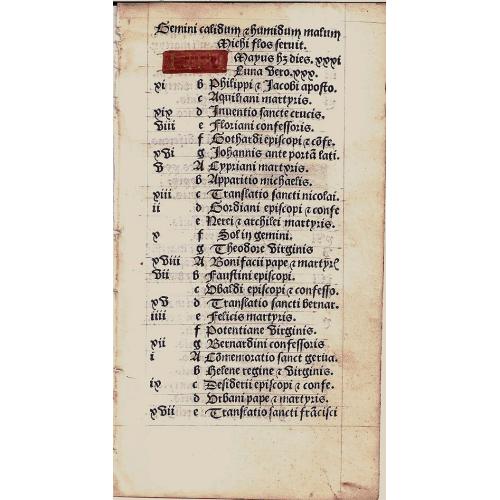 Gemini calidum ⁊ humidum malum
Michi flos seruit.
Mayus hꝫ dies. xxxi
Luna Vero. xxx.
xi b Philippi ⁊ Jacobi aposto.
c Aquiliani martyris.
xix d Inuentio sancte crucis.
viii e Floriani confessoris.
f Gothardi episcopi ⁊ cōfe.
xvi g Johannis ante portā lati.
v A Cypriani martyris.
b Apparitio michaelis.
xiii c Translatio sancti nicolai.
ii d Gordiani episcopi ⁊ confe
e Nerei ⁊ archilei martyris.
x f Sol in gemini.
g Theodore Virginis
xviii A Bonifacii pape ⁊ martyrꝭ
vii b Faustini episcopi.
c Vbaldi episcopi ⁊ confesso.
xv d Translatio sancti bernar.
iiii e Felicis martyris.
f Potentiane Virginis.
xii g Bernardini confessoris
i A Cōmemoratio sanct gerua.
b Helene regine ⁊ Virginis.
ix c Desiderii episcopi ⁊ confe.
d Vrbani pape ⁊ martyris.
xvii e Translatio sancti frācisci